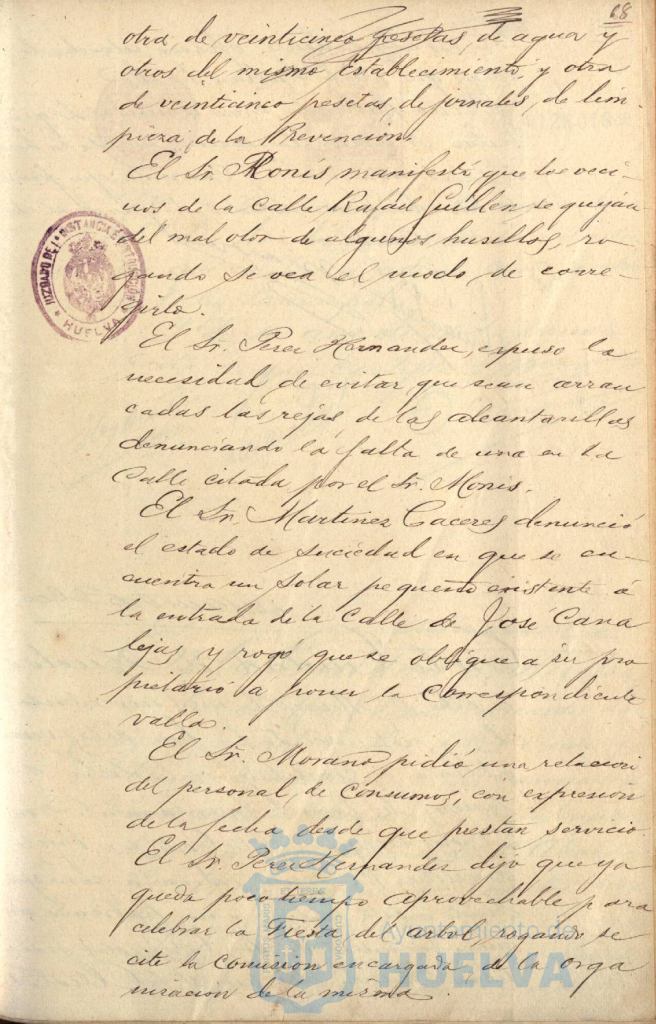 68
otra, de veinticinco pesetas, de agua y
otros del mismo establecimiento, y otra
de veinticinco pesetas, de jornales, de lim-
pieza, de la Prevencion.
El Sr. Monis manifestó que los veci-
nos de la calle Rafael Guillen se quejan
del mal olor de algunos husillos, ro-
gando se vea el modo de corre-
girlo.
El Sr. Perez Hernandez, expuso la
necesidad de evitar que sean arran
cadas las rejas, de las alcantarillas
denunciando la falta de una en la
calle citada por el Sr. Monis.
El Sr. Martinez Caceres denunció
el estado de suciedad en que se en-
cuentra un solar pequeño existente á
la entrada de la calle de José Cana
lejas y rogó que se obligue a su pro
pietario a poner la correspondiente
valla.
El Sr. Morano pidió una relacion
del personal, de Consumos, con expresion
de la fecha desde que prestan servicio.
El Sr. Perez Hernandez dijo que ya
queda poco tiempo aprovechable para
celebrar la Fiesta del arbol, rogando se
cite la Comision encargada, de la orga
nizacion de la misma.
JUZGADO DE 1ª INSTANCIA E
HUELVA
Ayuntamiento de
HUELVA